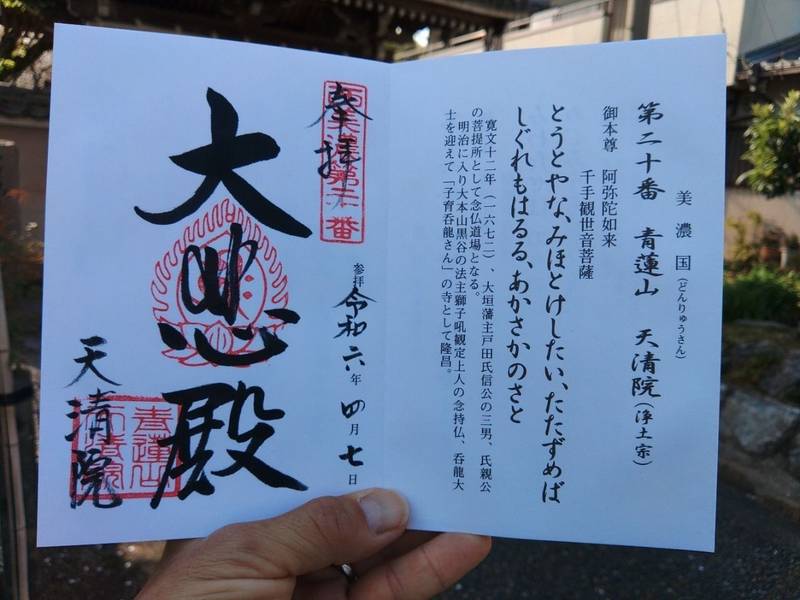 美濃国(どんりゅうさん)
第二十番 青蓮山 天清院(浄土宗)
御本尊 阿弥陀如来
千手観世音菩薩
とうとやな、みほとけしたい、たたずめば
しぐれもはるる、あかさかのさと
寛文十二年(一六七二)、大垣藩主戸田氏信公の三男、氏親公
の菩提所として念仏道場となる。
明治に入り大本山黒谷の法主獅子吼観定上人の念持仏、呑龍大
士を迎えて「子育呑龍さん」の寺として隆昌。
奉拝
西美濃第二十番
参拝 令和六年四月七日
大悲殿
天清院
青蓮山
天清院